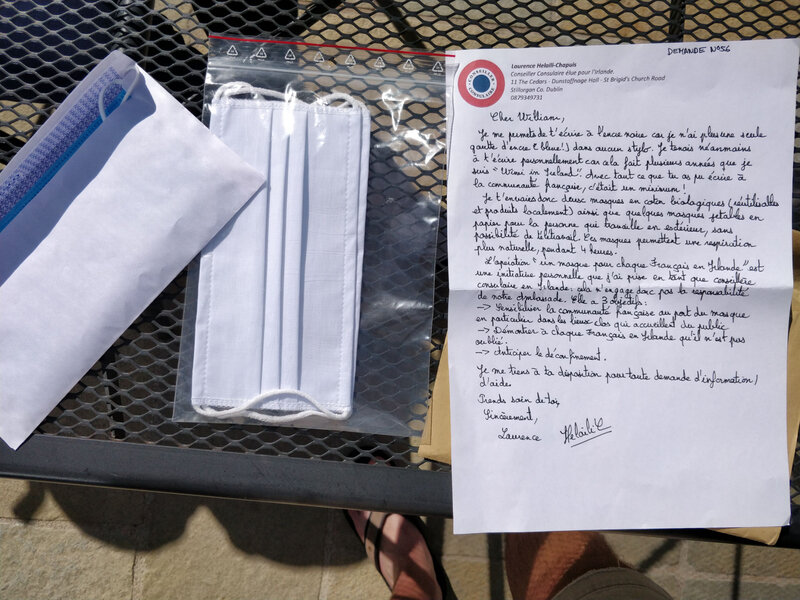 DEMANDE N°56
Laurence Helaili-Chapuis
Conseiller Consulaire élue pour l'Irlande.
11 The Cedars - Dunstaffnage Hall - St Brigid's Church Road
Stillorgan Co. Dublin
0879349731
CONSEILLER CONSULAIRE
Cher William,
Je me permets de t'écrire à l'encre noire car je n'ai plus une seule
goutte d'encre (bleue!) dans aucun stylo. Je tenais néanmoins
à t'écrire personnellement car cela fait plusieurs années que je
suis "Wimi in Ireland". Avec tout ce que tu as pu écrire à
la communauté française, c'était un minimum!
Je t'envoies donc deux masques en coton biologiques (réutilisables
et produits localement) ainsi que quelques masques jetables en
papier pour la personne qui travaille en extérieur, sans
possibilité de télétravail. Ces masques permettent une respiration
plus naturelle, pendant 4 heures.
L'opération "un masque pour chaque Français en Irlande" est
une initiative personnelle que j'ai prise en tant que conseillère
consulaire en Irlande: cela n'engage donc pas la responsabilité
de notre ambassade. Elle a 3 objectifs:
→ Sensibiliser la communauté française au port du masque
en particulier dans les lieux clos qui accueillent du public
→ Démontrer à chaque Français en Irlande qu'il n'est pas
oublié.
→ Anticiper le déconfinement.
Je me tiens à ta disposition pour toute demande d'information/
d'aide.
Prends soin de toi,
Sincèrement,
Laurence Helaili C